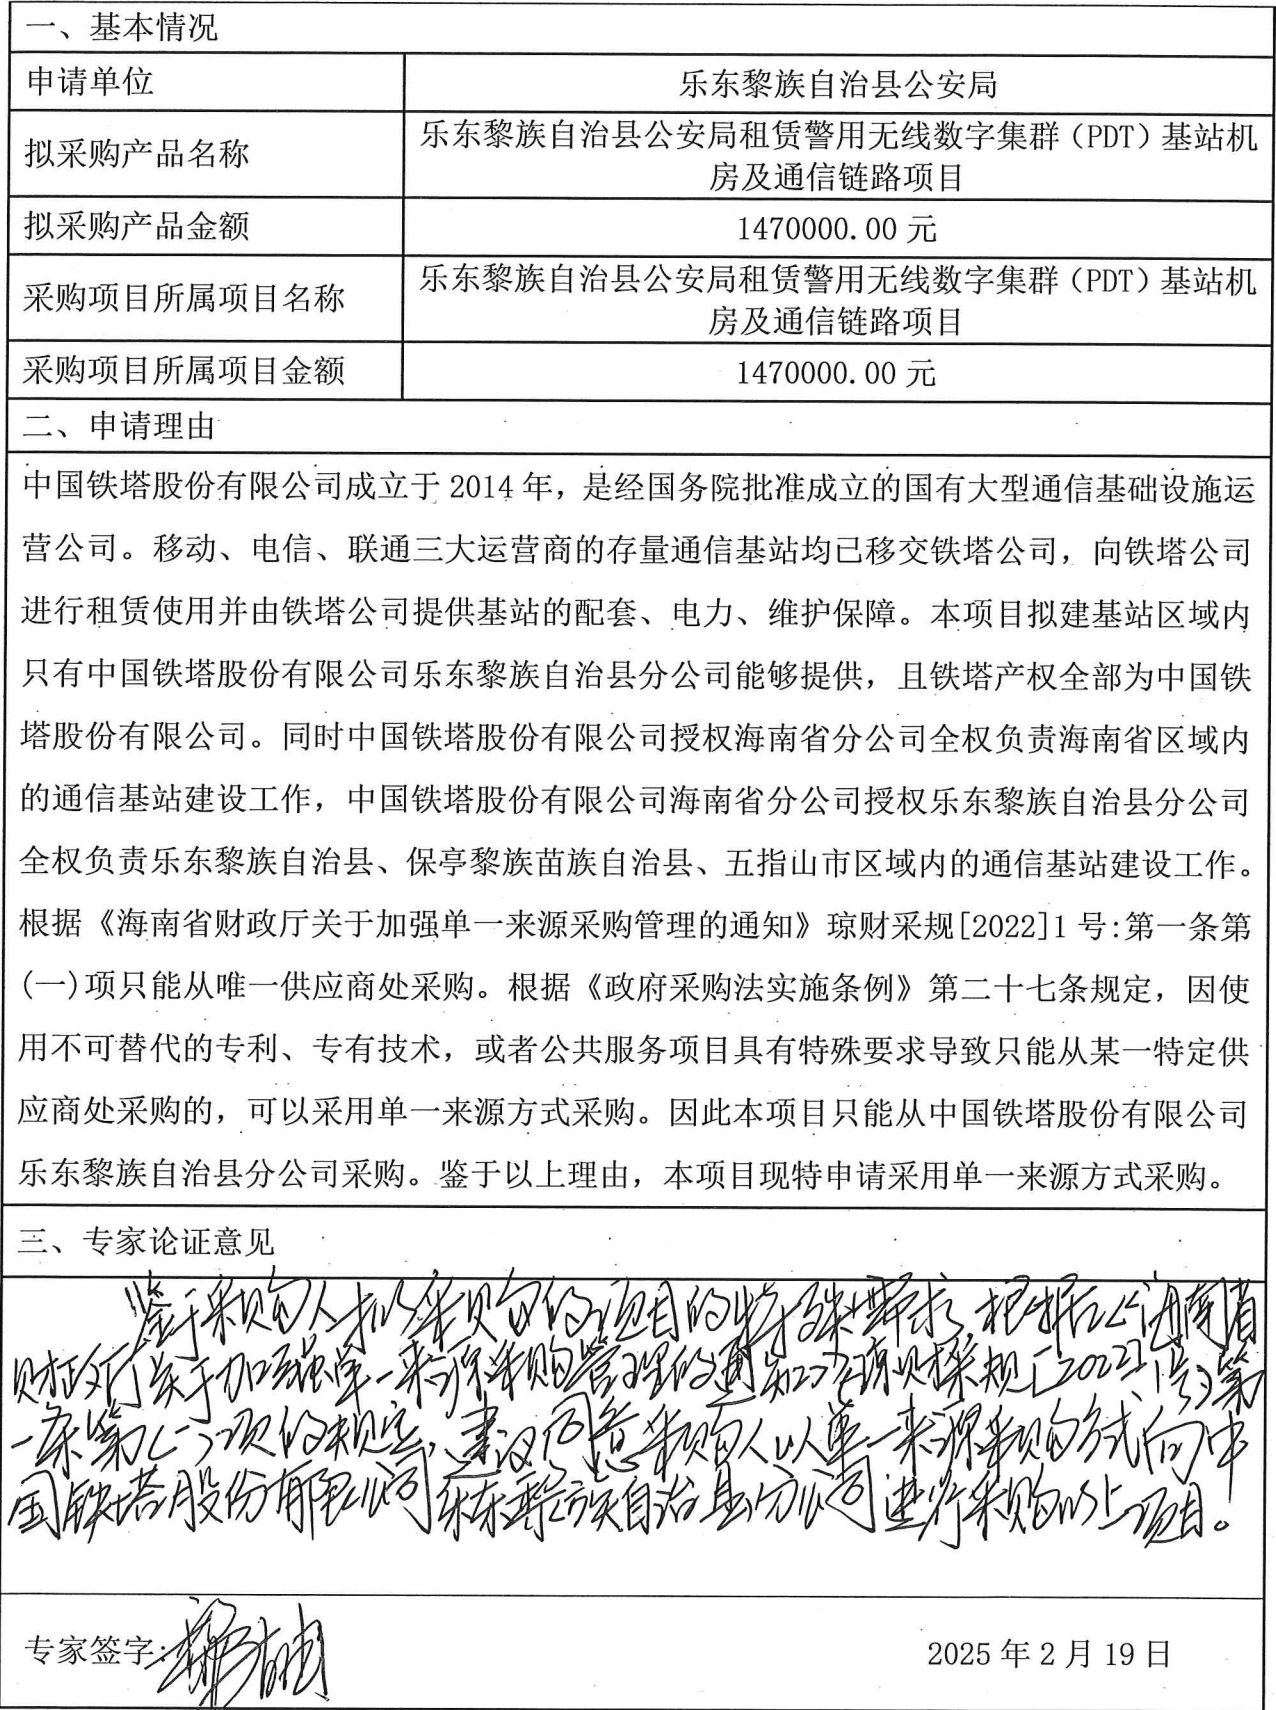 一、基本情况
申请单位
乐东黎族自治县公安局
拟采购产品名称
乐东黎族自治县公安局租赁警用无线数字集群（PDT）基站机
房及通信链路项目
拟采购产品金额
1470000.00 元
采购项目所属项目名称
乐东黎族自治县公安局租赁警用无线数字集群（PDT）基站机
房及通信链路项目
采购项目所属项目金额
1470000.00 元
二、申请理由
中国铁塔股份有限公司成立于 2014 年，是经国务院批准成立的国有大型通信基础设施运
营公司。移动、电信、联通三大运营商的存量通信基站均已移交铁塔公司，向铁塔公司
进行租赁使用并由铁塔公司提供基站的配套、电力、维护保障。本项目拟建基站区域内
只有中国铁塔股份有限公司乐东黎族自治县分公司能够提供，且铁塔产权全部为中国铁
塔股份有限公司。同时中国铁塔股份有限公司授权海南省分公司全权负责海南省区域内
的通信基站建设工作，中国铁塔股份有限公司海南省分公司授权乐东黎族自治县分公司
全权负责乐东黎族自治县、保亭黎族苗族自治县、五指山市区域内的通信基站建设工作。
根据《海南省财政厅关于加强单一来源采购管理的通知》琼财采规[2022]1 号:第一条第
(一)项只能从唯一供应商处采购。根据《政府采购法实施条例》第二十七条规定，因使
用不可替代的专利、专有技术，或者公共服务项目具有特殊要求导致只能从某一特定供
应商处采购的，可以采用单一来源方式采购。因此本项目只能从中国铁塔股份有限公司
乐东黎族自治县分公司采购。鉴于以上理由，本项目现特申请采用单一来源方式采购。
三、专家论证意见
鉴于采购人拟采购的项目的特殊需求，根据《海南省
财政厅关于加强单一来源采购管理的通知》（琼财采规[2022]1号）第
一条第(一)项的规定，建议同意采购人以单一来源采购方式向中
国铁塔股份有限公司乐东黎族自治县分公司进行采购以上项目。
专家签字:
2025 年 2 月 19 日